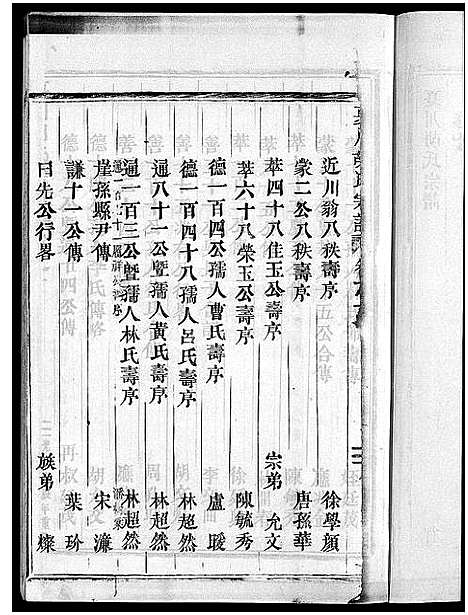 近川翁八秩壽序　徐學顔
蒙二公八秩壽序　唐孫華
萃四十八佳玉公壽序　宗弟　允文
萃六十八榮玉公壽序　陳毓秀
德一百四公孺人曹氏壽序　盧璦
德一百四十八孺人呂氏壽序　林超然
通八十一公暨孺人黃氏壽序　林超然
通一百三公暨孺人林氏壽序　林超然
崖孫縣尹傳　宋濂
謙十一公傳　葉玠
日先公行畧　族弟　燦